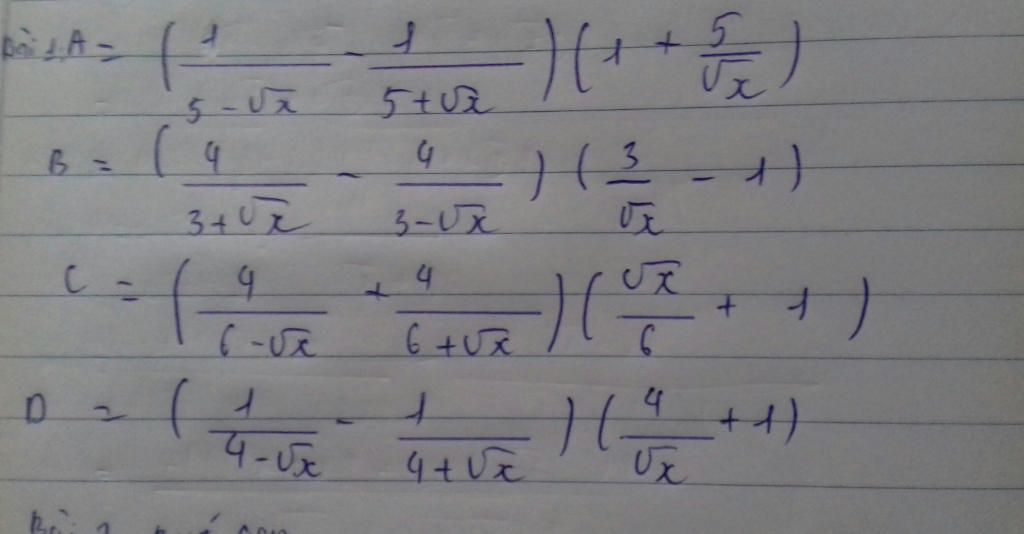 Bài 1. A = ( 1/(5-√x) - 1/(5+√x) ) ( 1 + 5/√x )
B = ( 4/(3+√x) - 4/(3-√x) ) ( 3/√x - 1 )
C = ( 4/(6-√x) + 4/(6+√x) ) ( √x/6 + 1 )
D = ( 1/(4-√x) - 1/(4+√x) ) ( 4/√x + 1 )